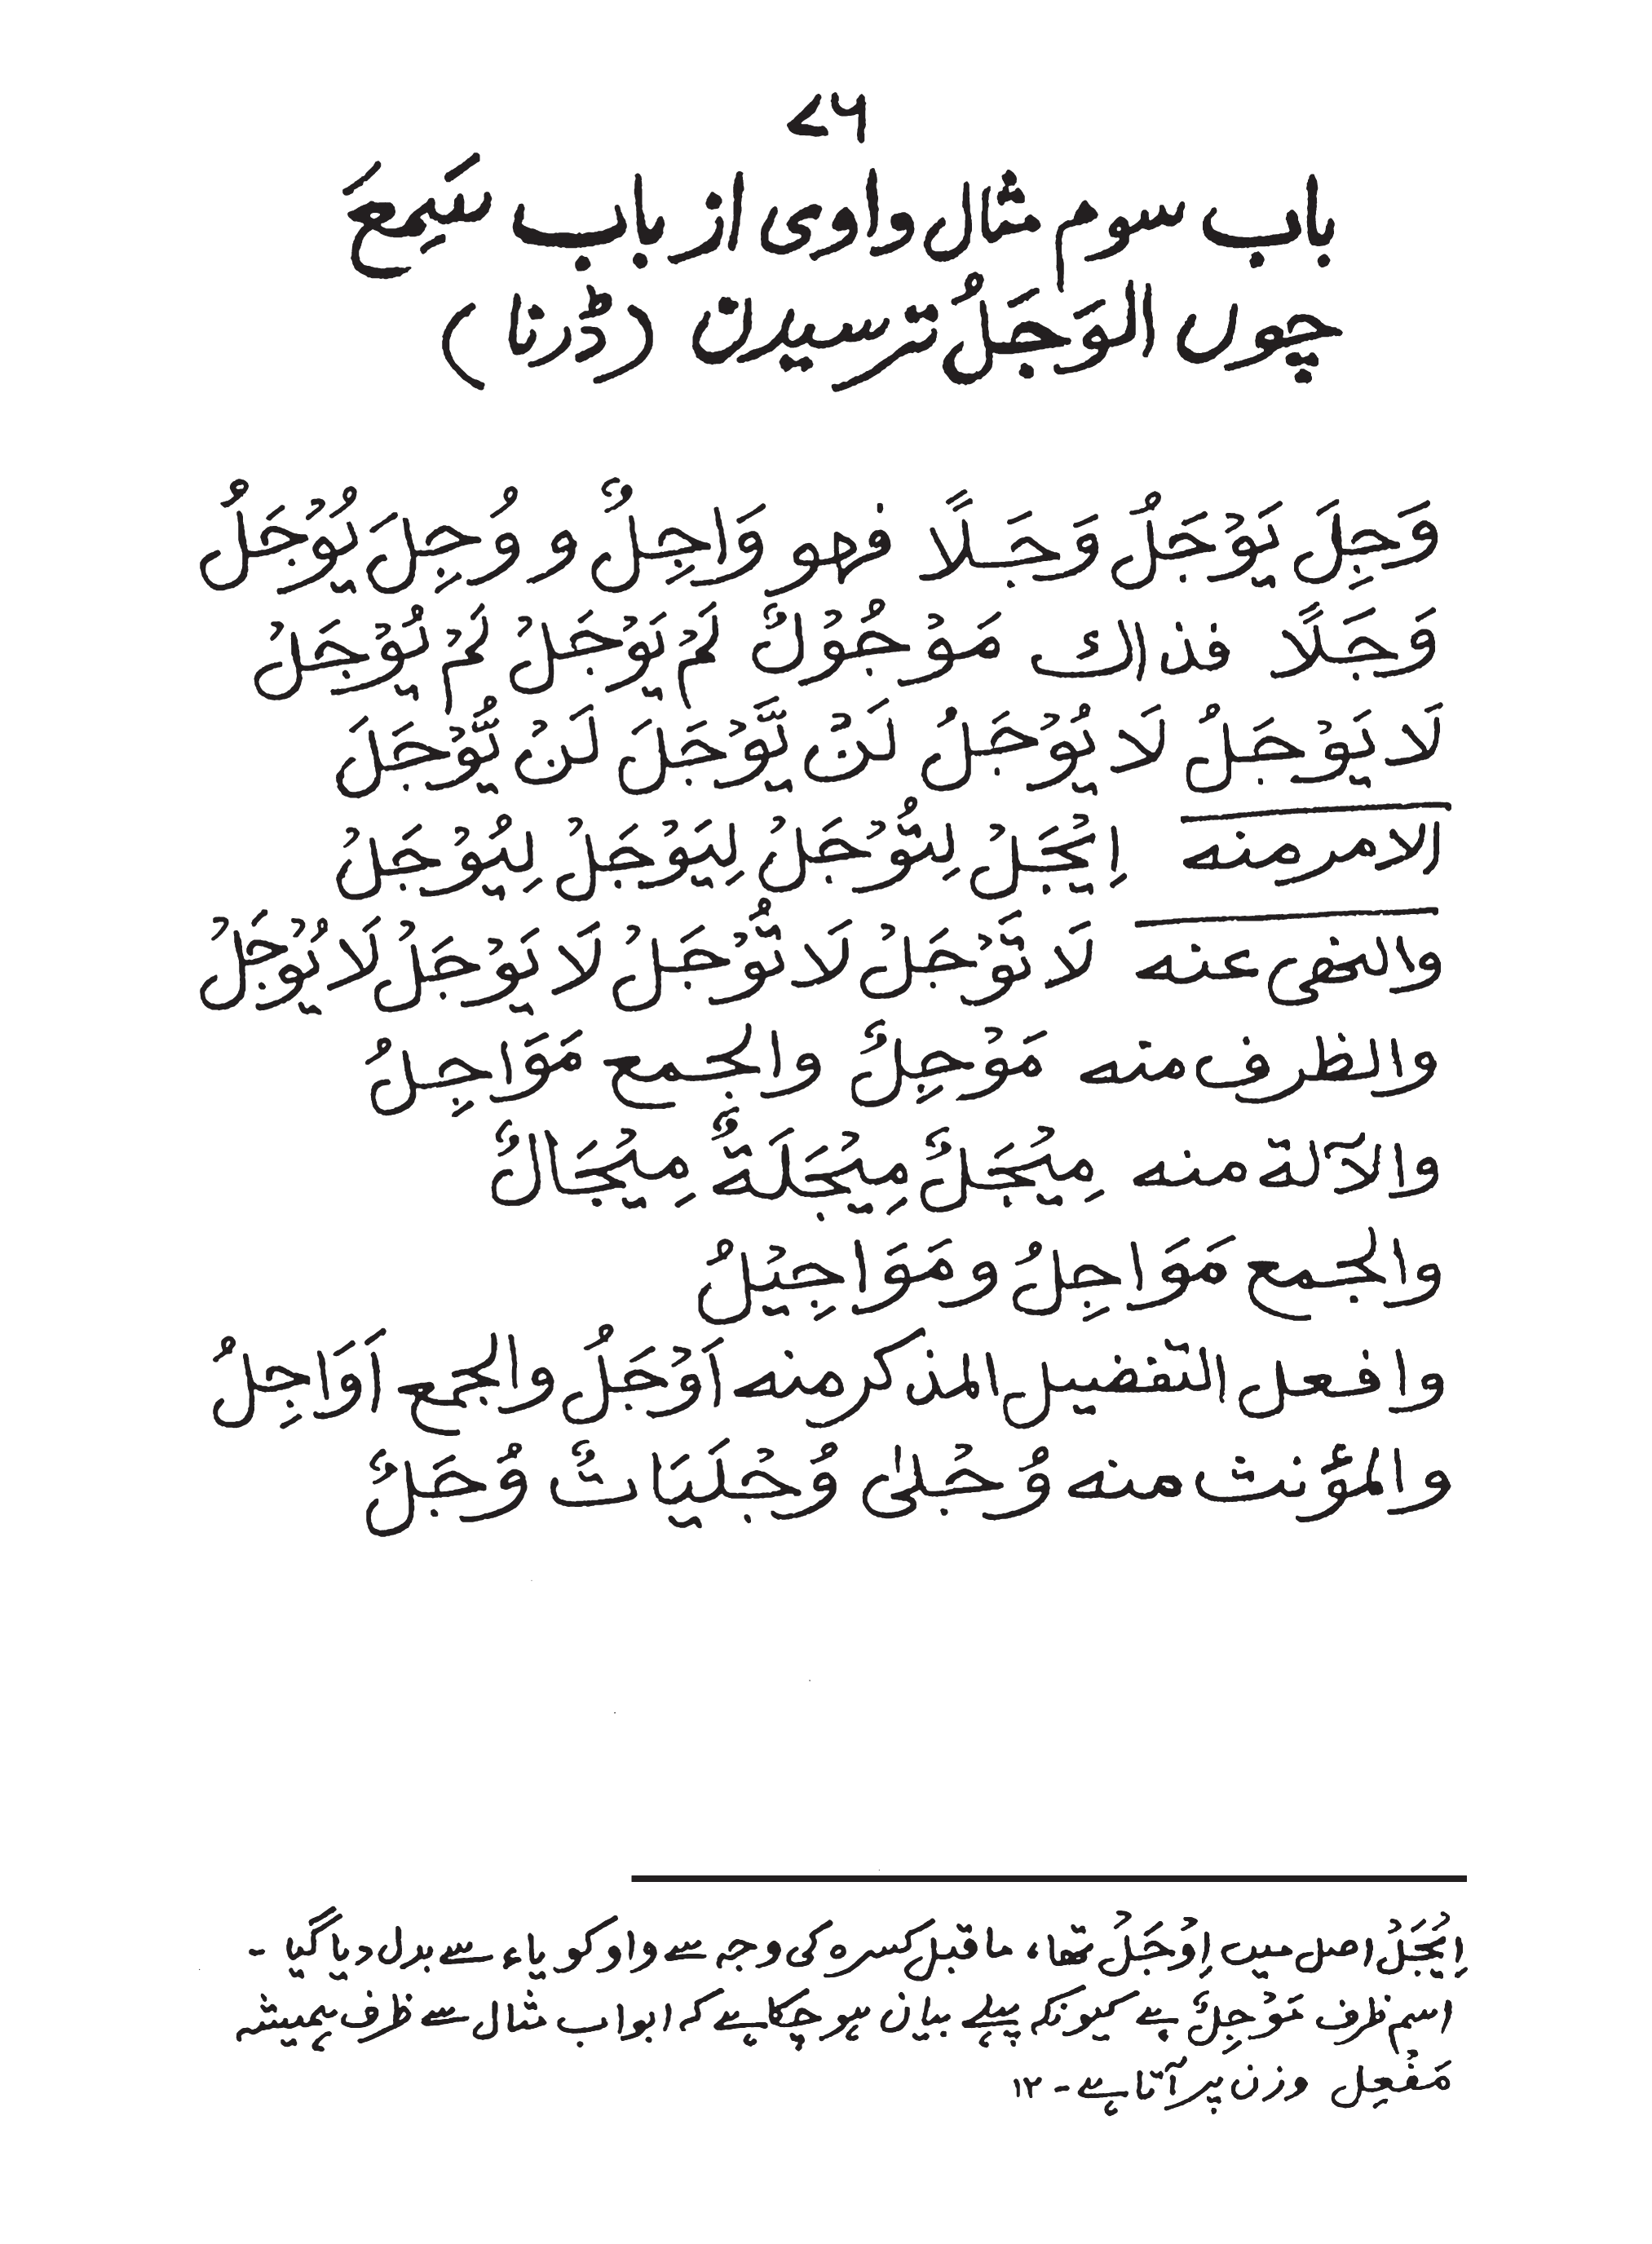 ۷۶
باب سوم مثال واوی از باب سَمِعَ
چوں الوَجَلُ ترسیدن (ڈرنا)
وَجِلَ يَوْجَلُ وَجَلًا فهو وَاجِلٌ و وُجِلَ يُوْجَلُ
وَجَلًا فذاك مَوْجُوْلٌ لَمْ يَوْجَلْ لَمْ يُوْجَلْ
لَا يَوْجَلُ لَا يُوْجَلُ لَنْ يَّوْجَلَ لَنْ يُّوْجَلَ
الامر منه اِيْجَلْ لِتُوْجَلْ لِيَوْجَلْ لِيُوْجَلْ
والنهى عنه لَا تَوْجَلْ لَا تُوْجَلْ لَا يَوْجَلْ لَا يُوْجَلْ
والظرف منه مَوْجِلٌ والجمع مَوَاجِلُ
والآلة منه مِيْجَلٌ مِيْجَلَةٌ مِيْجَالٌ
والجمع مَوَاجِلُ و مَوَاجِيْلُ
وافعل التفضيل المذكر منه اَوْجَلُ والجمع اَوَاجِلُ
والمؤنث منه وُجْلىٰ وُجْلَيَاتٌ وُجَلٌ
اِيْجَلْ اصل میں اِوْجَلْ تھا، ماقبل کسرہ کی وجہ سے واو کو یاء سے بدل دیا گیا -
اسم ظرف مَوْجِلٌ ہے کیونکہ پہلے بیان ہو چکا ہے کہ ابواب مثال سے ظرف ہمیشہ
مَفْعِل وزن پر آتا ہے - ۱۲